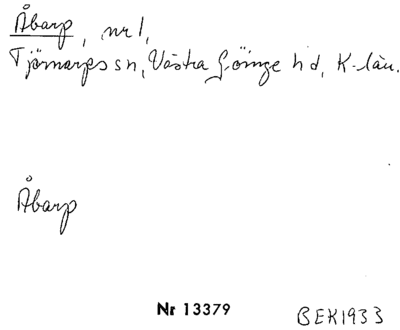 Åbarp, nr 1,
Tjörnarps sn, Västra Göinge hd, K-län.
Åbarp
Nr 13379
BEK1933